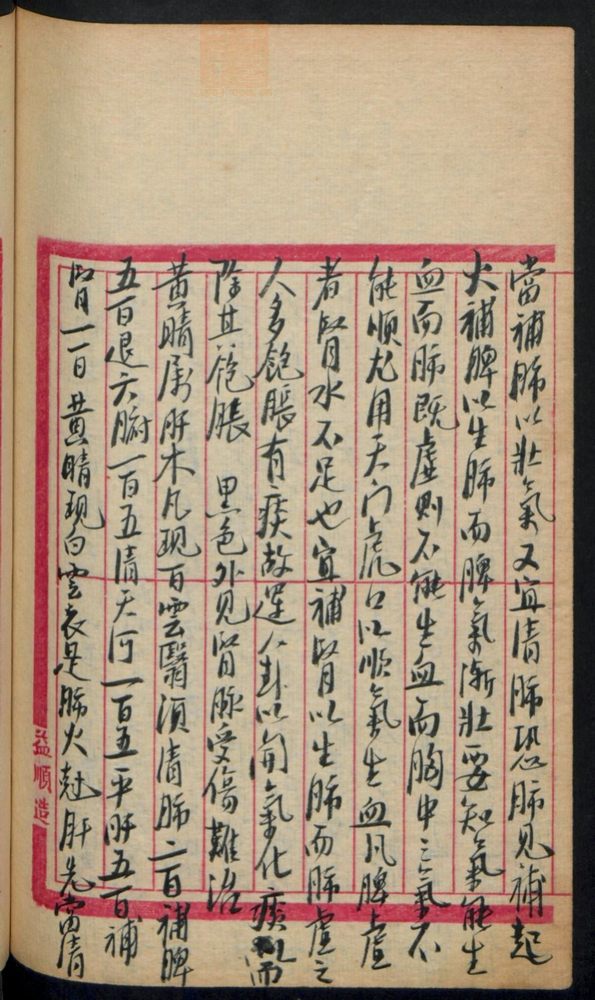 當補肺以壯氣又宜清肺恐肺見補起
火補脾以生肺而脾氣漸壯要知氣能生
血而肺既虛則不能生血而胸中之氣不
能順尤用天门虎口以順氣生血凡脾虛
者腎水不足也宜補腎以生肺而肺虛之
人多飽脹有痰故運八卦以開氣化痰而
除其飽脹 黑色外見腎脉受傷難治
黄睛属肝木凡現白雲翳須清肺二百補脾
五百退六腑一百五清天河一百五平肝五百補
腎一百 黄睛現白雲衣是肺火尅肝先當清
益順造